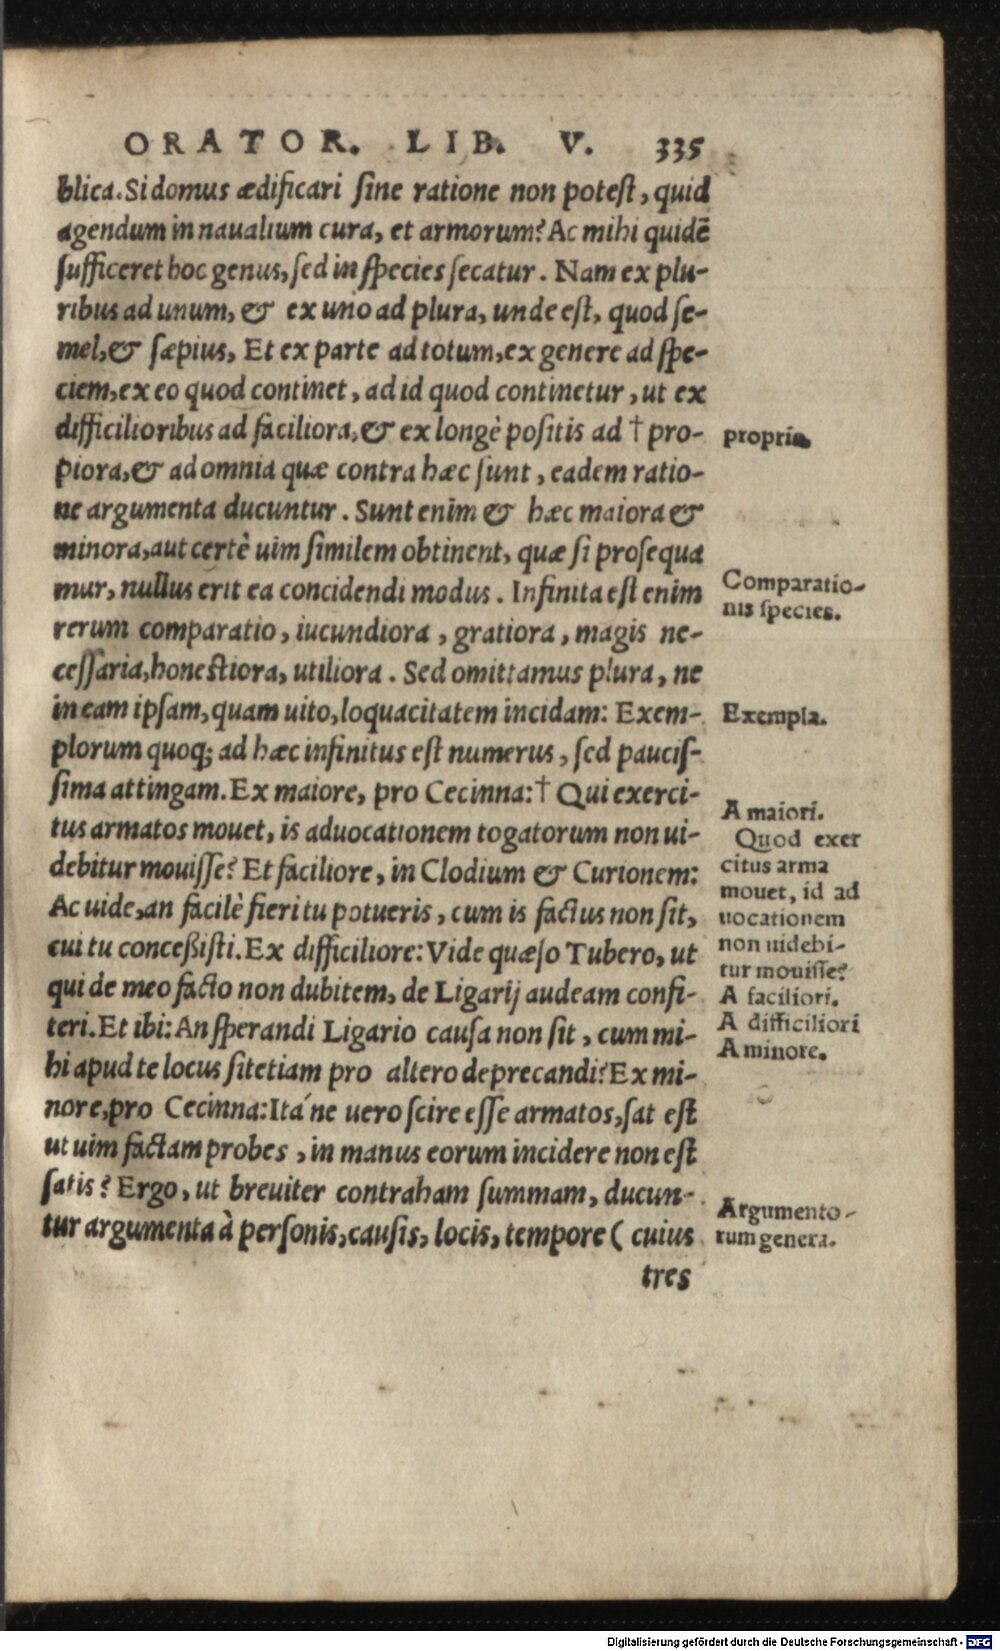 ORATOR. LIB. V. 335
blica. Si domus ædificari sine ratione non potest, quid
agendum in naualium cura, et armorum? Ac mihi quidē
sufficeret hoc genus, sed in species secatur. Nam ex plu-
ribus ad unum, & ex uno ad plura, unde est, quod se-
mel, & sæpius, Et ex parte ad totum, ex genere ad spe-
ciem, ex eo quod continet, ad id quod continetur, ut ex
difficilioribus ad faciliora, & ex longè positis ad † pro-
piora, & ad omnia quæ contra hæc sunt, eadem ratio-
ne argumenta ducuntur. Sunt enim & hæc maiora &
minora, aut certè uim similem obtinent, quæ si prosequa
mur, nullus erit ea concidendi modus. Infinita est enim
rerum comparatio, iucundiora, gratiora, magis ne-
cessaria, honestiora, utiliora. Sed omittamus plura, ne
in eam ipsam, quam uito, loquacitatem incidam: Exem-
plorum quoq; ad hæc infinitus est numerus, sed paucis-
sima attingam. Ex maiore, pro Cecinna: † Qui exerci-
tus armatos mouet, is aduocationem togatorum non ui-
debitur mouisse? Et faciliore, in Clodium & Curionem:
Ac uide, an facilè fieri tu potueris, cum is factus non sit,
cui tu concessisti. Ex difficiliore: Vide quæso Tubero, ut
qui de meo facto non dubitem, de Ligarij audeam confi-
teri. Et ibi: An sperandi Ligario causa non sit, cum mi-
hi apud te locus sit etiam pro altero deprecandi? Ex mi-
nore, pro Cecinna: Ita'ne uero scire esse armatos, sat est
ut uim factam probes, in manus eorum incidere non est
satis? Ergo, ut breuiter contraham summam, ducun-
tur argumenta à personis, causis, locis, tempore (cuius
tres
propria
Comparatio-
nis species.
Exempla.
A maiori.
Quod exer
citus arma
mouet, id ad
uocationem
non uidebi-
tur mouisse?
A faciliori.
A difficiliori
A minore.
Argumento-
rum genera.
Digitalisierung gefördert durch die Deutsche Forschungsgemeinschaft - DFG